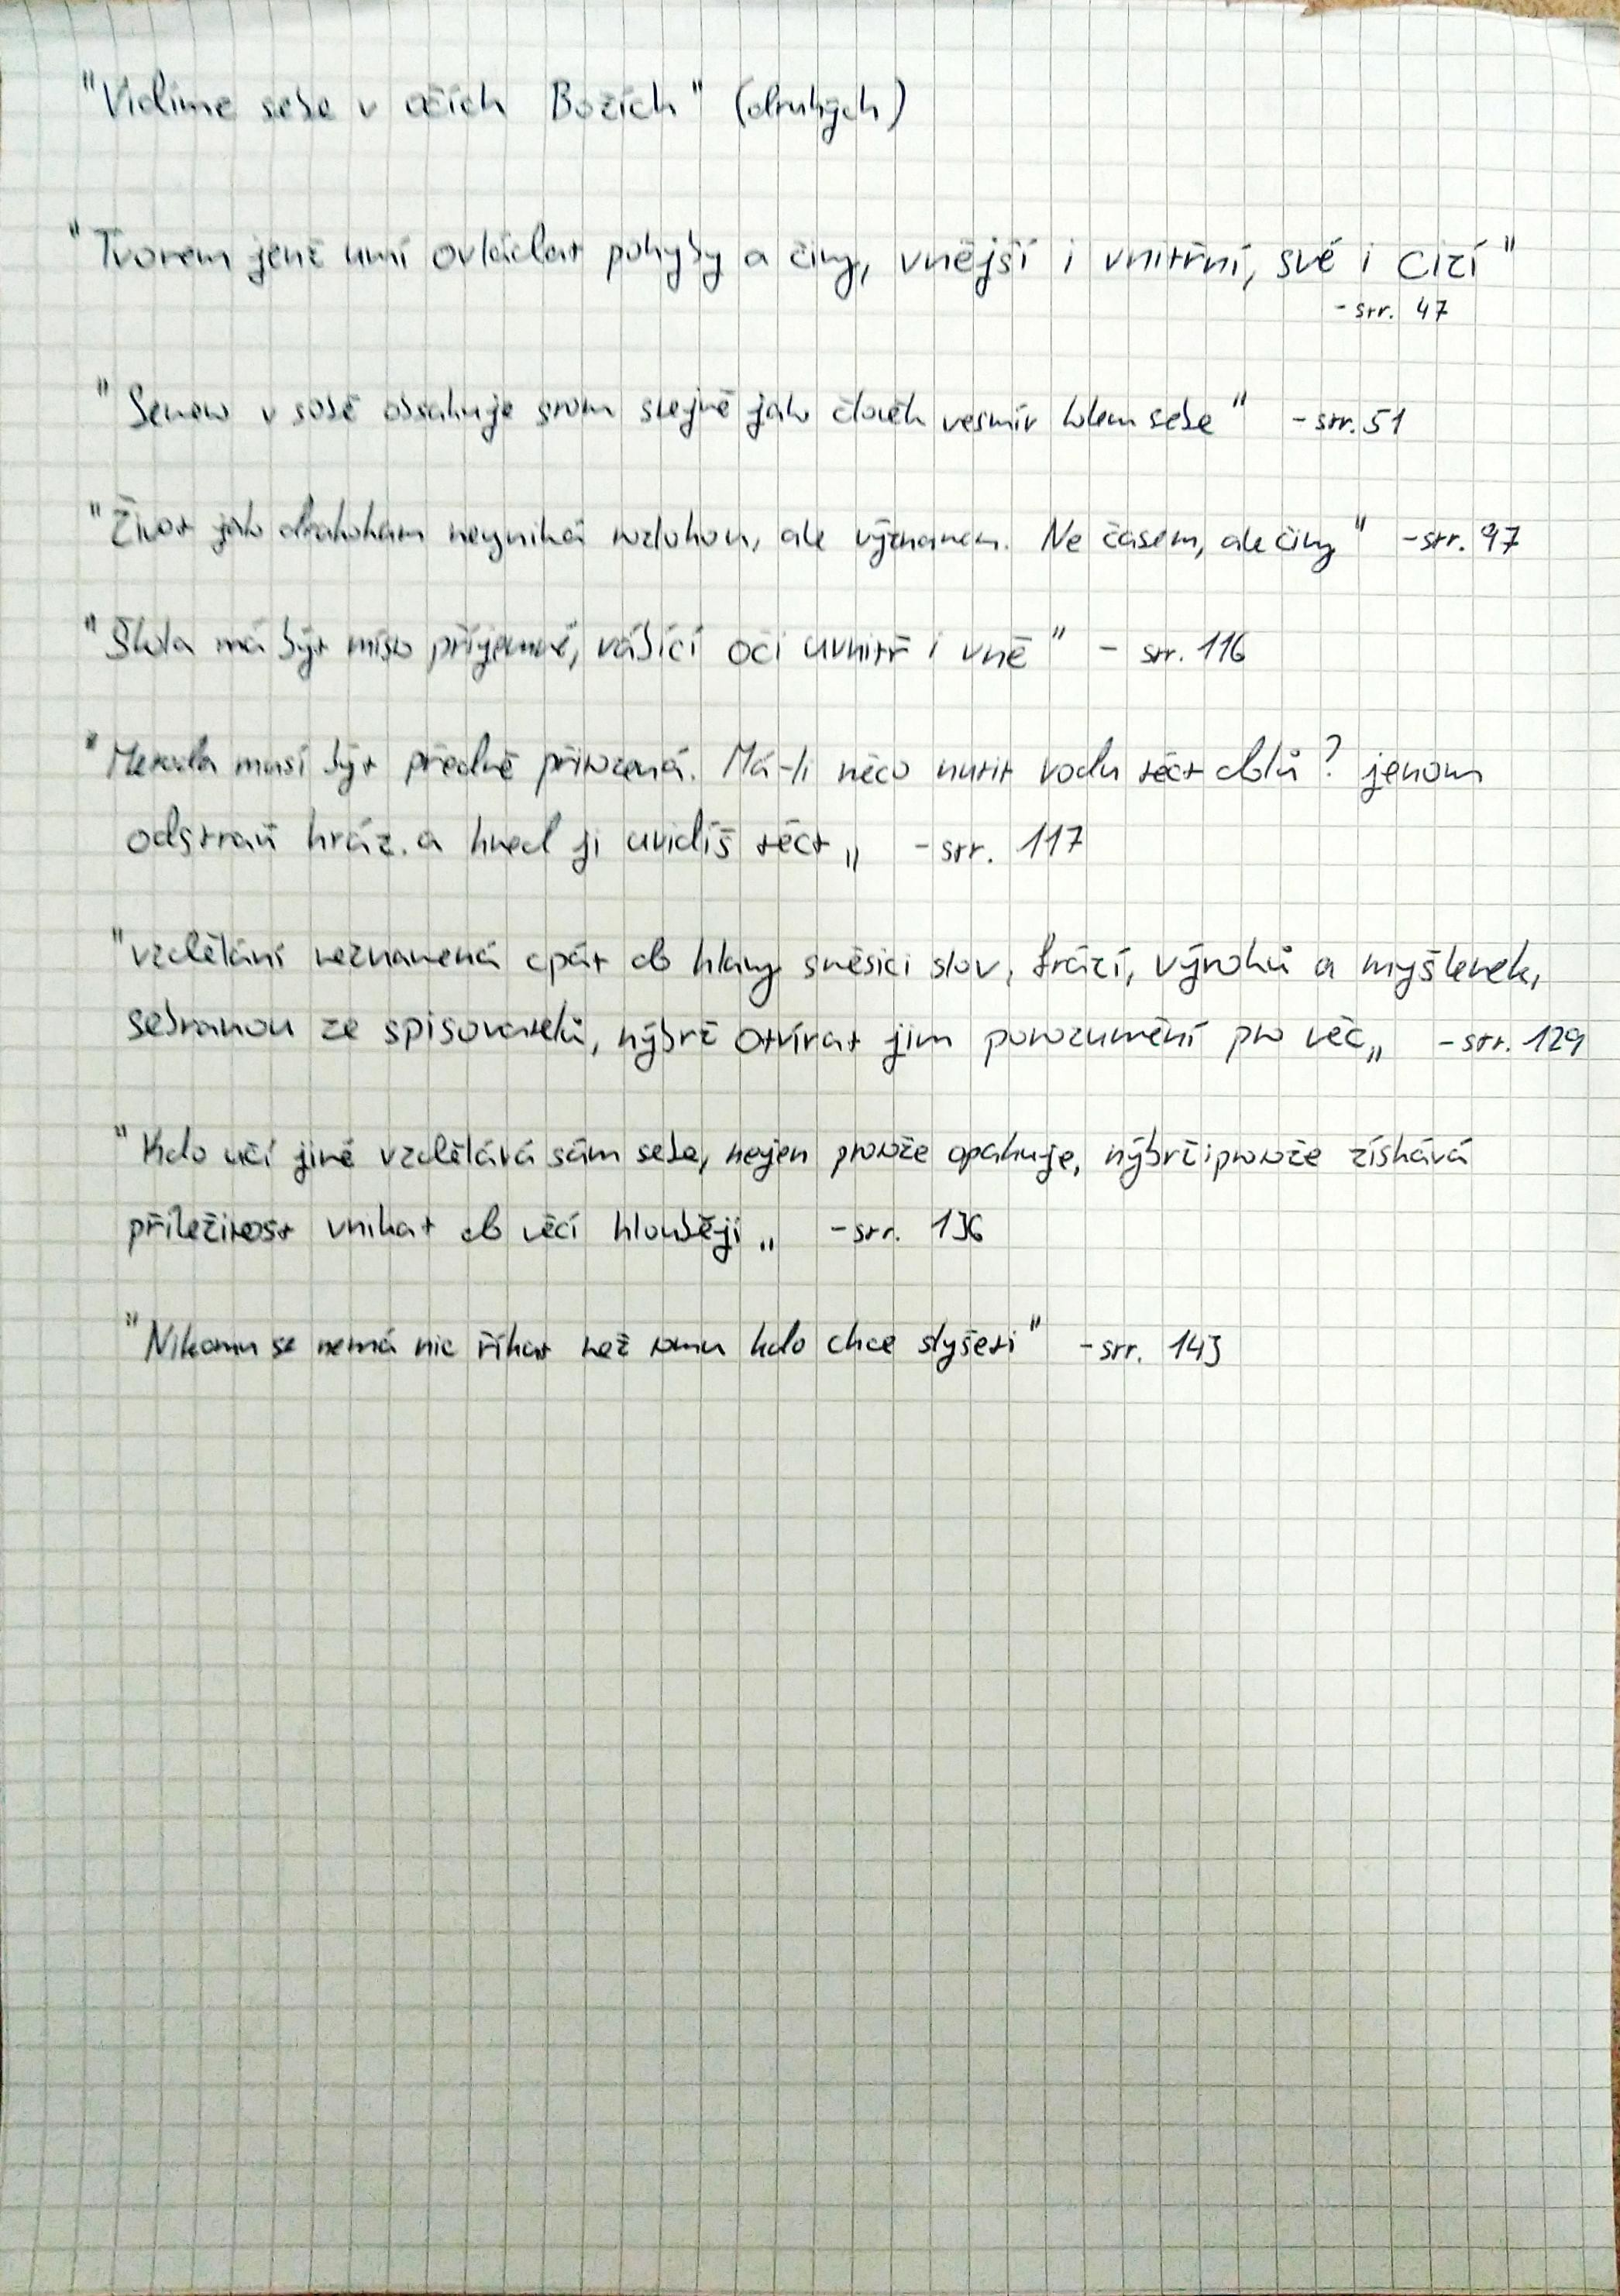 "Vidíme sebe v očích Božích" (druhých)
"Tvorem jenž umí ovládat pohyby a činy, vnější i vnitřní, své i cizí"
- str. 47
"Semeno v sobě obsahuje strom stejně jako člověk vesmír kolem sebe" - str. 51
"Život jako drahokam nevyniká rozlohou, ale významem. Ne časem, ale činy" - str. 97
"Škola má být místo příjemné, vábící oči uvnitř i vně" - str. 116
"Metoda musí být předně přirozená. Má-li něco nutit vodu téct dolů? jenom
odstraň hráz. a hned ji uvidíš téct„ - str. 117
"vzdělání neznamená cpát do hlavy směsici slov, frází, výroků a myšlenek,
sebranou ze spisovatelů, nýbrž otvírat jim porozumění pro věc„ - str. 129
"Kdo učí jiné vzdělává sám sebe, nejen protože opakuje, nýbrž i protože získává
příležitost vnikat do věcí hlouběji„ - str. 136
"Nikomu se nemá nic říkat než tomu kdo chce slyšeti" - str. 143